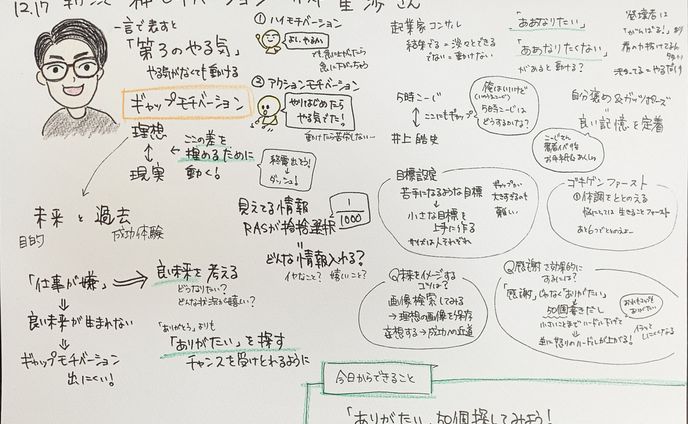 12.17
モチベーション
さん
一言で表すと
「第3のやる気」
やる気がなくても動ける
ギャップモチベーション
理想
↕
現実
ここの差を
埋めるために
動く!
未来と過去
目的
成功体験
「仕事が嫌」
↓
良い未来が生まれない
↓
ギャップモチベーション
出にくい!
良い未来を考える
どうなりたい?
どんなが
嬉しい?
「ありがとう」よりも
「ありがたい」を探す
チャンスを受けとれるように
① ハイモチベーション
よし、やるぞ
でも
急に下がっちゃう
② アクションモチベーション
やりはじめたら
やる気でた!
動けたら苦労しない…
経費出そう!
ダッシュ!
見えてる情報
RASが
選択
1/1000
=
どんな情報入れる?
イヤなこと? 嬉しいこと?
起業家コンサル
結果でる=淡々とできる
でない=動けない
5時こーじ
↕ ここもギャップ
井上皓史
俺はいいけど
5時こーじは
どうするかな?
「ああなりたい」
「ああなりたくない」
があると動ける?
管理者は
「がんばる!」
やるだけ
自分褒め&ガッツポーズ
良い記憶を定着
こーじさん
目標設定
苦手になるような目標
↓
小さな目標を
上手に作る
ギャップが
大きすぎるのも
難しい
ゴキゲンファースト
①体調をととのえる
生きることファースト
あと6つととのえよー
Q 未来をイメージする
コツは?
画像検索してみる
→理想の画像を保存
妄想する→成功への近道
Q 感謝を効果的に
するには?
「感謝」じゃなく“ありがたい”
50個書きだし
小さいことまでハードル下げて
逆に怒りのハードルが上がる!
イラっと
しにくくなる
今日からできること
「ありがたい」50個探してみよう!